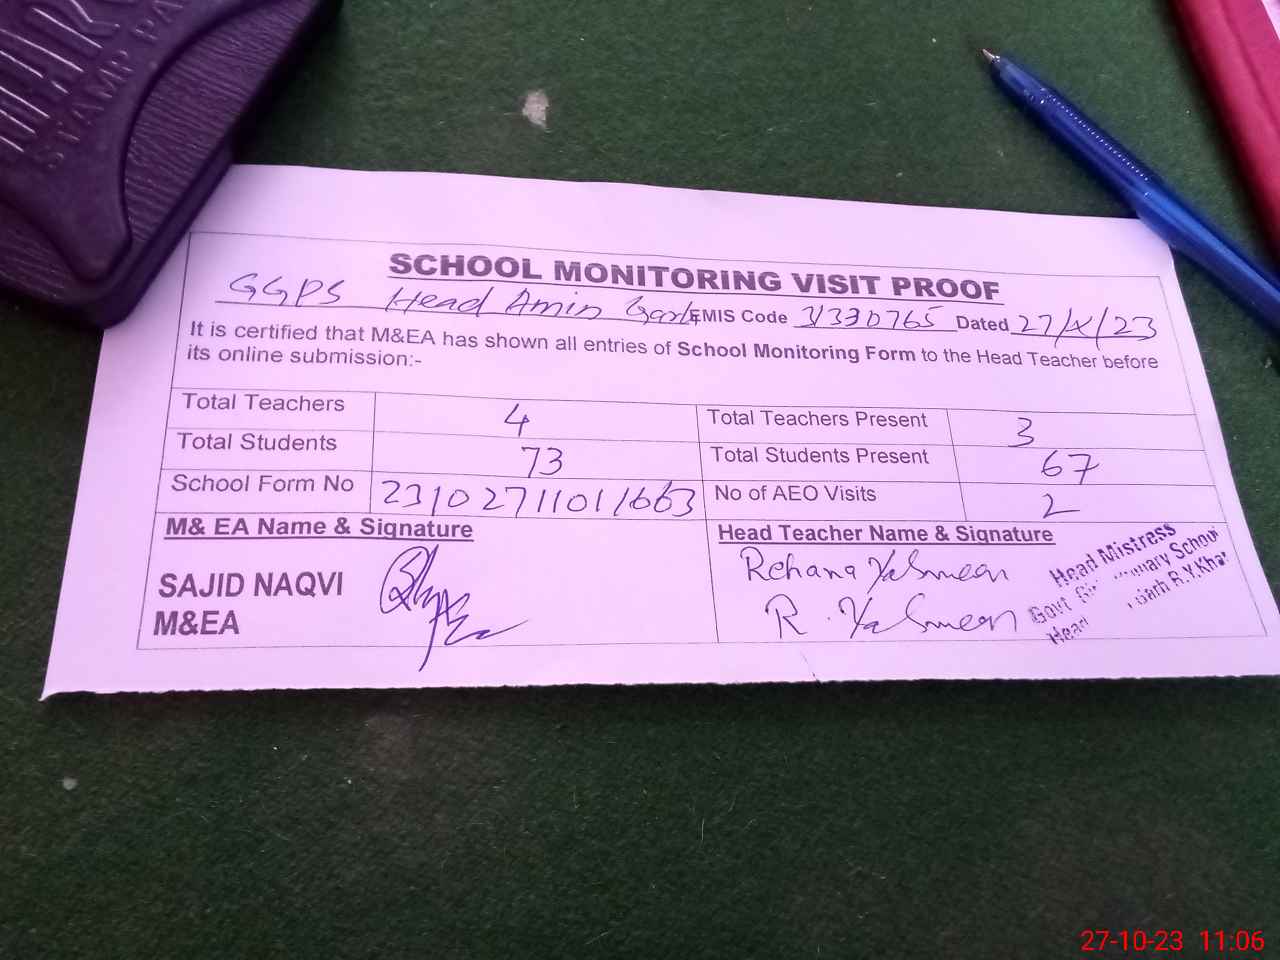 STAMP PA
SCHOOL MONITORING VISIT PROOF
GGPS Head Amin Garh EMIS Code 31330765 Dated 27/X/23
It is certified that M&EA has shown all entries of School Monitoring Form to the Head Teacher before
its online submission:-
Total Teachers 4 Total Teachers Present 3
Total Students 73 Total Students Present 67
School Form No 231027110111663 No of AEO Visits 2
M& EA Name & Signature Head Teacher Name & Signature
SAJID NAQVI
M&EA
Rehana Yasmeen
R. Yasmeen
Head Mistress
Govt School
Head R.Y.Khan
27-10-23 11:06